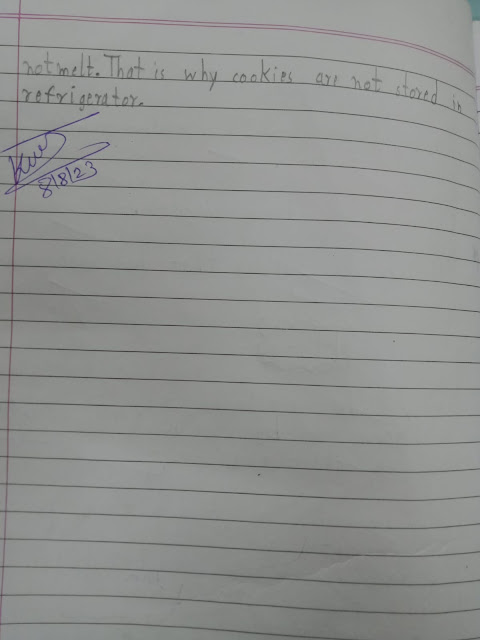 not melt. That is why cookies are not stored in
refrigerator.
8/8/23